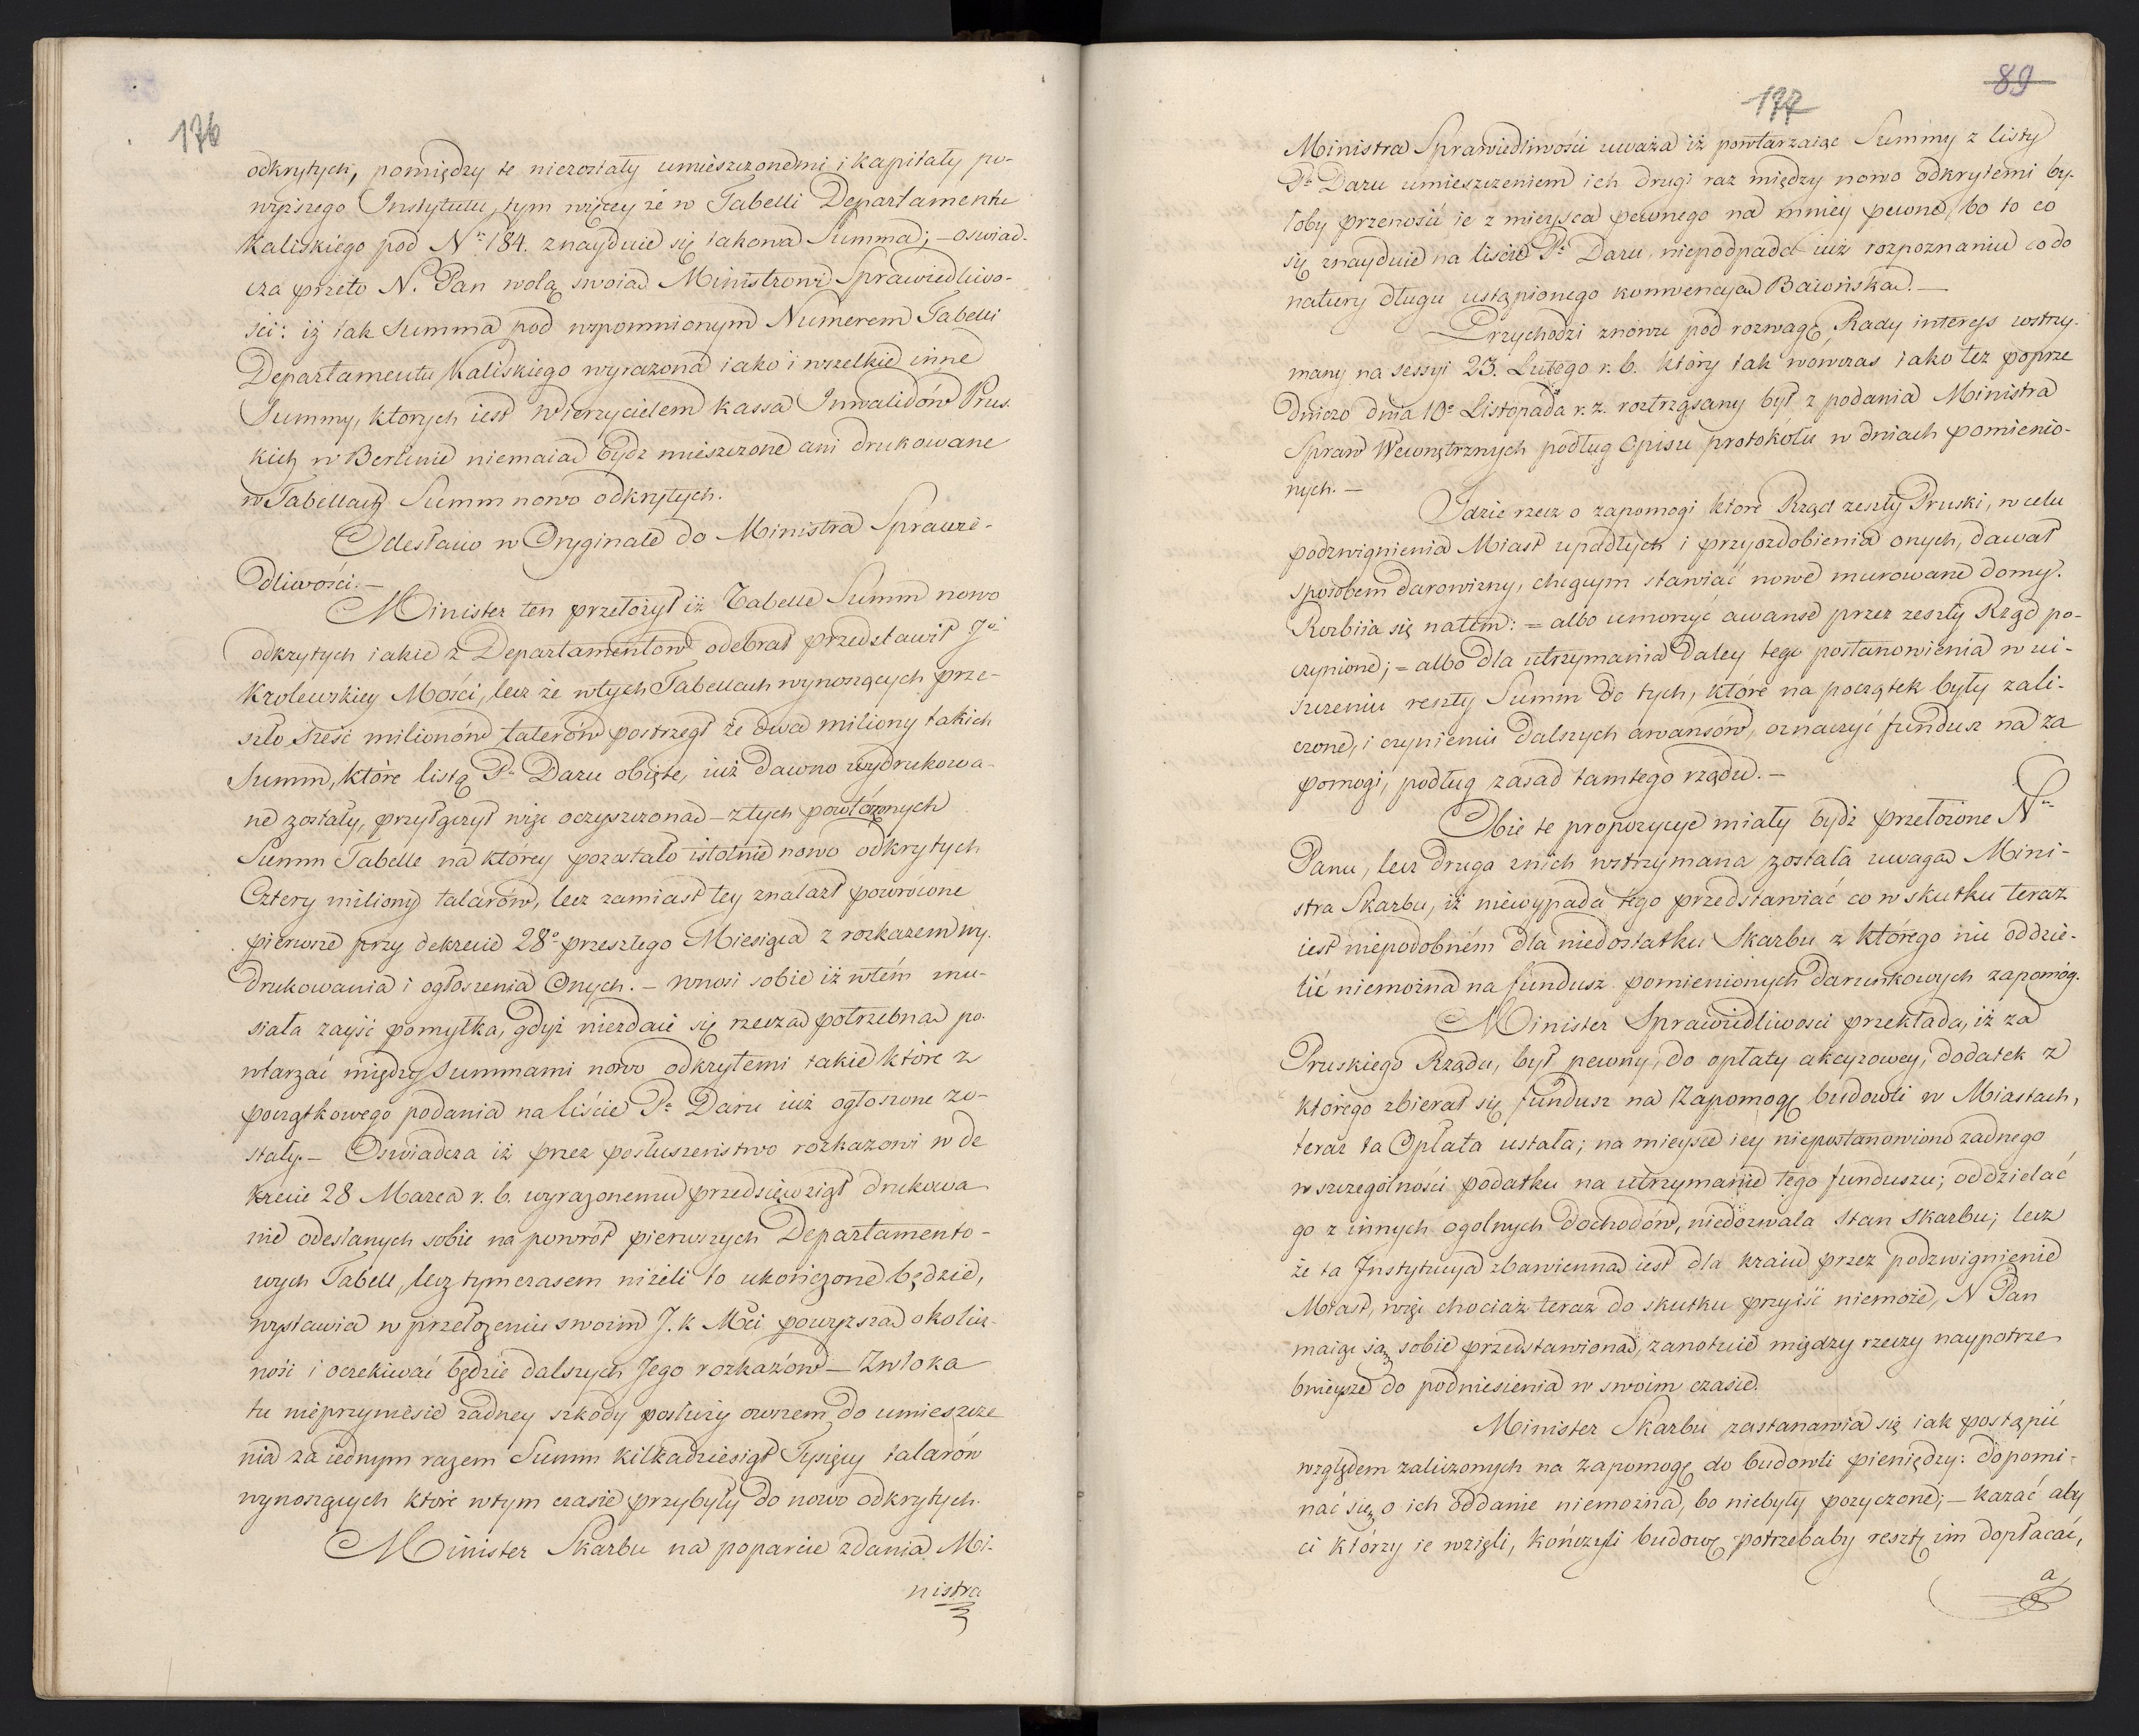 176
odkrytych, pomiędzy te niezostały umieszczonemi i kapitały po-
wyższego Instytutu, tym więcey że w Tabelli Departamentu
Kaliskiego pod Nr. 184. znayduie się takowa Summa; - oswiad-
cza przeto N. Pan wolą swoią Ministrowi Sprawiedliwo-
ści: iż tak Summa pod wspomnionym Numerem Tabelli
Departamentu Kaliskiego wyrażona iako i wszelkie inne
Summy, ktorych iest Wierzycielem kassa Inwalidów Prus-
kich w Berlinie niemaią bydz mieszczone ani drukowane
w Tabellach Summ nowo odkrytych.
Odesłano w Oryginale do Ministra Sprawie-
dliwości. -
Minister ten przełożył iż Tabelle Summ nowo
odkrytych iakie z Departamentow odebrał przedstawił Jo
Krolewskiey Mości, lecz że w tych Tabellach wynoszących prze-
szło sześć milionów talerów postrzegł że dwa miliony takich
Summ, które listą Pa Daru obięte, iuż dawno wydrukowa-
ne zostały, przyłączył więc oczyszczoną - z tych powtórzonych
Summ Tabelle na którey pozostało istotnie nowo odkrytych
Cztery miliony talarów, lecz zamiast tey znalazł powrócone
pierwsze przy dekrecie 28o przeszłego Miesiąca z rozkazem wy-
drukowania i ogłoszenia Onych. - wnosi sobie iż w tém mu-
siała zayść pomyłka, gdyż niezdaie się rzeczą potrzebną po-
wtarzać między Summami nowo odkrytemi takie które z
początkowego podania na liście Pa Daru iuż ogłoszone zo-
stały. - Oswiadcza iż przez posłuszeństwo rozkazowi w de
krecie 28 Marca r. b. wyrażonemu przedsięwziął drukowa
nie odesłanych sobie na powrót pierwszych Departamento-
wych Tabell, lecz tymczasem niżeli to ukończone będzie,
wystawia w przełożeniu swoim J. K. Mci powyższą okolicz-
ność i oczekiwać będzie dalszych Jego rozkazów - Zwłoka
tu nieprzyniesie żadney szkody posłuży owszem do umieszcze
nia za iednym razem Summ kilkadziesiąt Tysięcy talarów
wynoszących które w tym czasie przybyły do nowo odkrytych.
Minister Skarbu na poparcie zdania Mi-
nistra
89
177
Ministra Sprawiedliwości uważa iż powtarzaiąc Summy z listy
Pa Daru umieszczeniem ich drugi raz między nowo odkrytemi by-
łoby przenosić ie z mieysca pewnego na mniey pewne, bo to co
się znayduie na liście Pa Daru, niepodpada iuż rozpoznaniu co do
natury długu ustąpionego konwencyą Baiońską. -
Przychodzi znowu pod rozwagę Rady interess wstrzy-
many na sessyi 23. Lutego r. b. który tak wowczas iako też poprze
dniczo dnia 10o Listopada r. z. roztrząsany był z podania Ministra
Spraw Wewnętrznych podług Opisu protokółu w dniach pomienio-
nych. -
Idzie rzecz o zapomogi które Rząd zeszły Pruski, w celu
podzwignienia Miast upadłych i przyozdobienia onych, dawał
sposobem darowizny, chcącym stawiać nowe murowane domy.
Rozbiia się natem: = albo umorzyć awanse przez zeszły Rząd po-
czynione; = albo dla utrzymania daley tego postanowienia w ui-
szczeniu reszty Summ do tych, które na początek były zali-
czone, i czynieniu dalszych awansów, oznaczyć fundusz na za
pomogi, podług zasad tamtego rządu. -
Obie te propozycye miały bydź przełożone N
Panu, lecz druga z nich wstrzymana została uwagą Mini-
stra Skarbu, iż niewypada tego przedstawiać co w skutku teraz
iest niepodobném dla niedostatku Skarbu z którego nic oddzie-
lić niemożna na fundusz pomienionych darunkowych zapomóg.
Minister Sprawiedliwości przekłada, iż za
Pruskiego Rządu, był pewny, do opłaty akcyzowey, dodatek z
którego zbierał się fundusz na Zapomogę budowli w Miastach,
teraz ta Opłata ustała; na mieysce iey niepostanowiono żadnego
w szczególności podatku na utrzymanie tego funduszu; oddzielać
go z innych ogolnych dochodów, niedozwala stan Skarbu; lecz
że ta Instytucya zbawienną iest dla kraiu przez podzwignienie
Miast, więc chociaż teraz do skutku przyiść niemoże, N Pan
maiąc ią sobie przedstawioną, zanotuie między rzeczy naypotrze
bnieysze do podniesienia w swoim czasie.
Minister Skarbu zastanawia się iak postąpić
względem zaliczonych na zapomogę do budowli pieniędzy: dopomi-
nać się o ich oddanie niemożna, bo niebyły pożyczone; - kazać aby
ci którzy ie wzięli, kończyli budowę potrzebaby resztę im dopłacać,
a